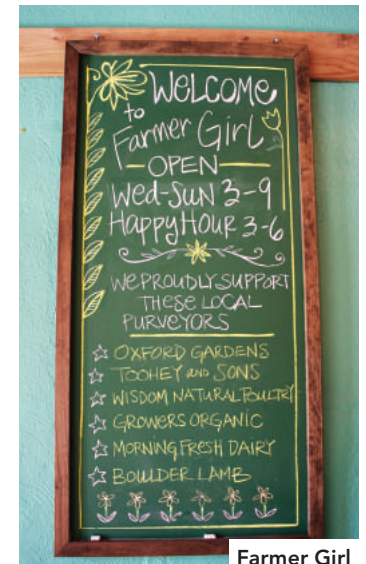 WELCOME
to
Farmer Girl
OPEN
Wed-Sun 3-9
Happy Hour 3-6
WE PROUDLY SUPPORT
THESE LOCAL
PURVEYORS
OXFORD GARDENS
TOOHEY AND SONS
WISDOM NATURAL POULTRY
GROWERS ORGANIC
MORNING FRESH DAIRY
BOULDER LAMB
Farmer Girl